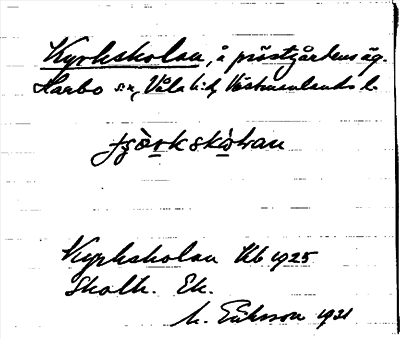 Kyrkskolan, å prästgårdens äg.
Harbo sn, Våla hd, Västmanlands l.
Kyrkskolan Kb 1925
Skolh. Ek.
M. Eriksson 1931